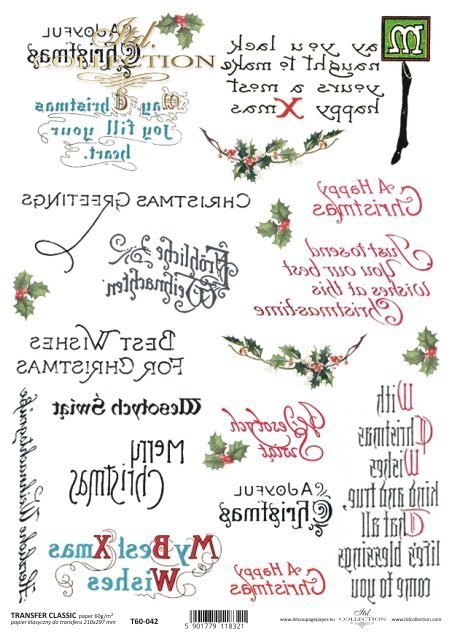 A JOYFUL
Christmas
ITD.
COLLECTION
May you lack
naught to make
yours a most
happy Xmas
May Christmas
Joy fill your
heart.
CHRISTMAS GREETINGS
A Happy
Christmas
Fröhliche
Weihnachten
Just to send
You our best
wishes at this
Christmas-time
BEST WISHES
FOR CHRISTMAS
Wesołych Świąt
Wesołych
Świąt
With
Christmas
Wishes
kind and true,
That all
life's blessings
come to you
Merry
Christmas
A JOYFUL
Christmas
My Best Xmas
Wishes
A Happy
Christmas
TRANSFER CLASSIC paper 60g/m²
papier klasyczny do transferu 210x297 mm
T60-042
5 901779 118321
www.decoupagepaper.eu
ITD.
COLLECTION
www.itdcollection.com